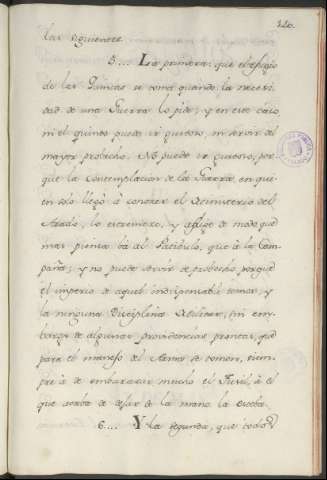 220.
las siguientes
5.... La primera: que el
de las Quintas se toma quando la necesi-
dad de una Guerra lo pide; y en este caso
ni el quinto puede ir gustoso, ni servir del
mayor probecho. No puede ir gustoso, por
que la Contemplacion de la Guerra, en qui-
en solo llegó à conocer el Ministerio del
Arado, lo estremece, y aflige de modo que
mas piensa bá al Patibulo, que à la Cam-
paña; y no puede servir de probecho porque
el imperio de aquel indispensable temor, y
la ninguna Disciplina Militar, sin em-
bargo de algunas providencias prontas, que
para el manejo del Arma se tomen, siem-
pre à de embarazar mucho el Fusil, à el
que acaba de dejar de la mano la esteba.
6.... Y la segunda, que todos